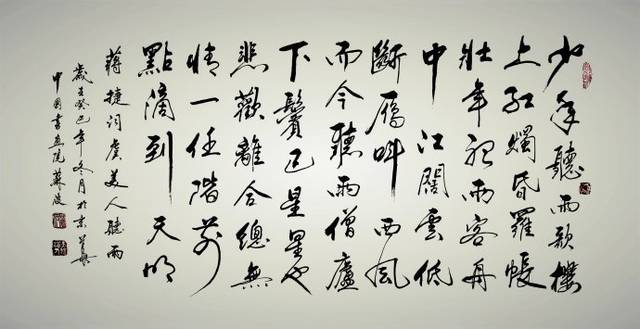 少年聽雨歌樓
上紅燭昏羅帳
壯年聽雨客舟
中江闊雲低
斷雁叫西風
而今聽雨僧廬
下鬢已星星也
悲歡離合總無
情一任階前
點滴到天明
蔣捷詞虞美人聽雨
歲在癸巳年冬月於京華
中國書画院